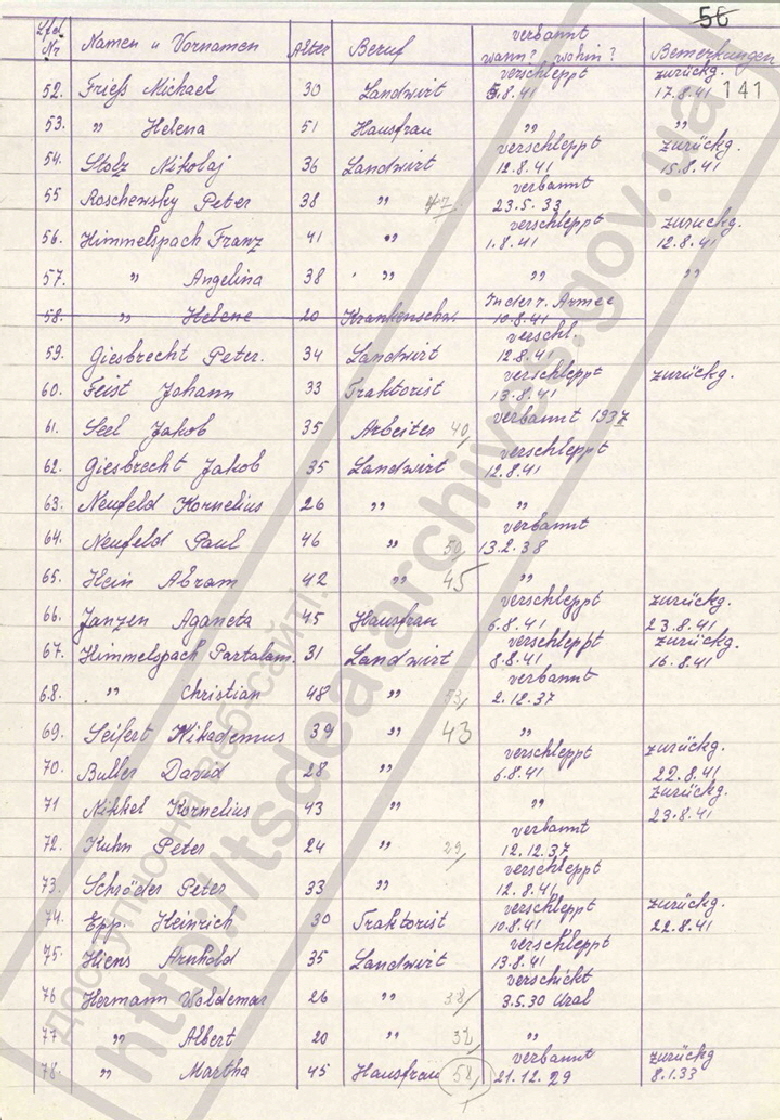 56
141
Lfd. Nr Namen u Vornamen Alter Beruf verbannt wann? wohin? Bemerkungen
52. Frieß Michael 30 Landwirt verschleppt 5.8.41 zurückg. 17.8.41
53. " Helena 51 Hausfrau " "
54. Stolz Nikolaj 36 Landwirt verschleppt 12.8.41 zurückg. 15.8.41
55 Roschewsky Peter 38 " 47 verbannt 23.5.33
56. Himmelspach Franz 41 " verschleppt 1.8.41 zurückg. 12.8.41
57. " Angelina 38 " " "
58. " Helene 20 Krankenschw. In der r. Armee 10.8.41
59. Giesbrecht Peter. 34 Landwirt verschl. 12.8.41
60. Feist Johann 33 Traktorist verschleppt 13.8.41 zurückg.
61. Seel Jakob 35 Arbeiter 40 verbannt 1937
62. Giesbrecht Jakob 35 Landwirt verschleppt 12.8.41
63. Neufeld Kornelius 26 " "
64. Neufeld Paul 46 " 50 verbannt 13.2.38
65. Hein Abram 42 " 45 "
66. Janzen Aganeta 45 Hausfrau verschleppt 6.8.41 zurückg. 23.8.41
67. Himmelspach Partalam. 31 Landwirt verschleppt 8.8.41 zurückg. 16.8.41
68. " Christian 48 " verbannt 2.12.37
69. Seifert Nikademus 39 " 43 "
70. Buller David 28 " verschleppt 6.8.41 zurückg. 22.8.41
71 Nikkel Kornelius 43 " " zurückg. 23.8.41
72. Kuhn Peter 24 " 29 verbannt 12.12.37
73. Schröder Peter 33 " verschleppt 12.8.41
74. Epp. Heinrich 30 Traktorist verschleppt 10.8.41 zurückg. 22.8.41
75. Hiens Arnhold 35 Landwirt verschleppt 13.8.41
76 Hermann Woldemar 26 " verschickt 3.5.30 Ural
77 " Albert 20 " 32 "
78. " Martha 45 Hausfrau 58 verbannt 21.12.29 zurückg 8.1.33
доступно на веб-сайті:
http://tsdea.archives.gov.ua